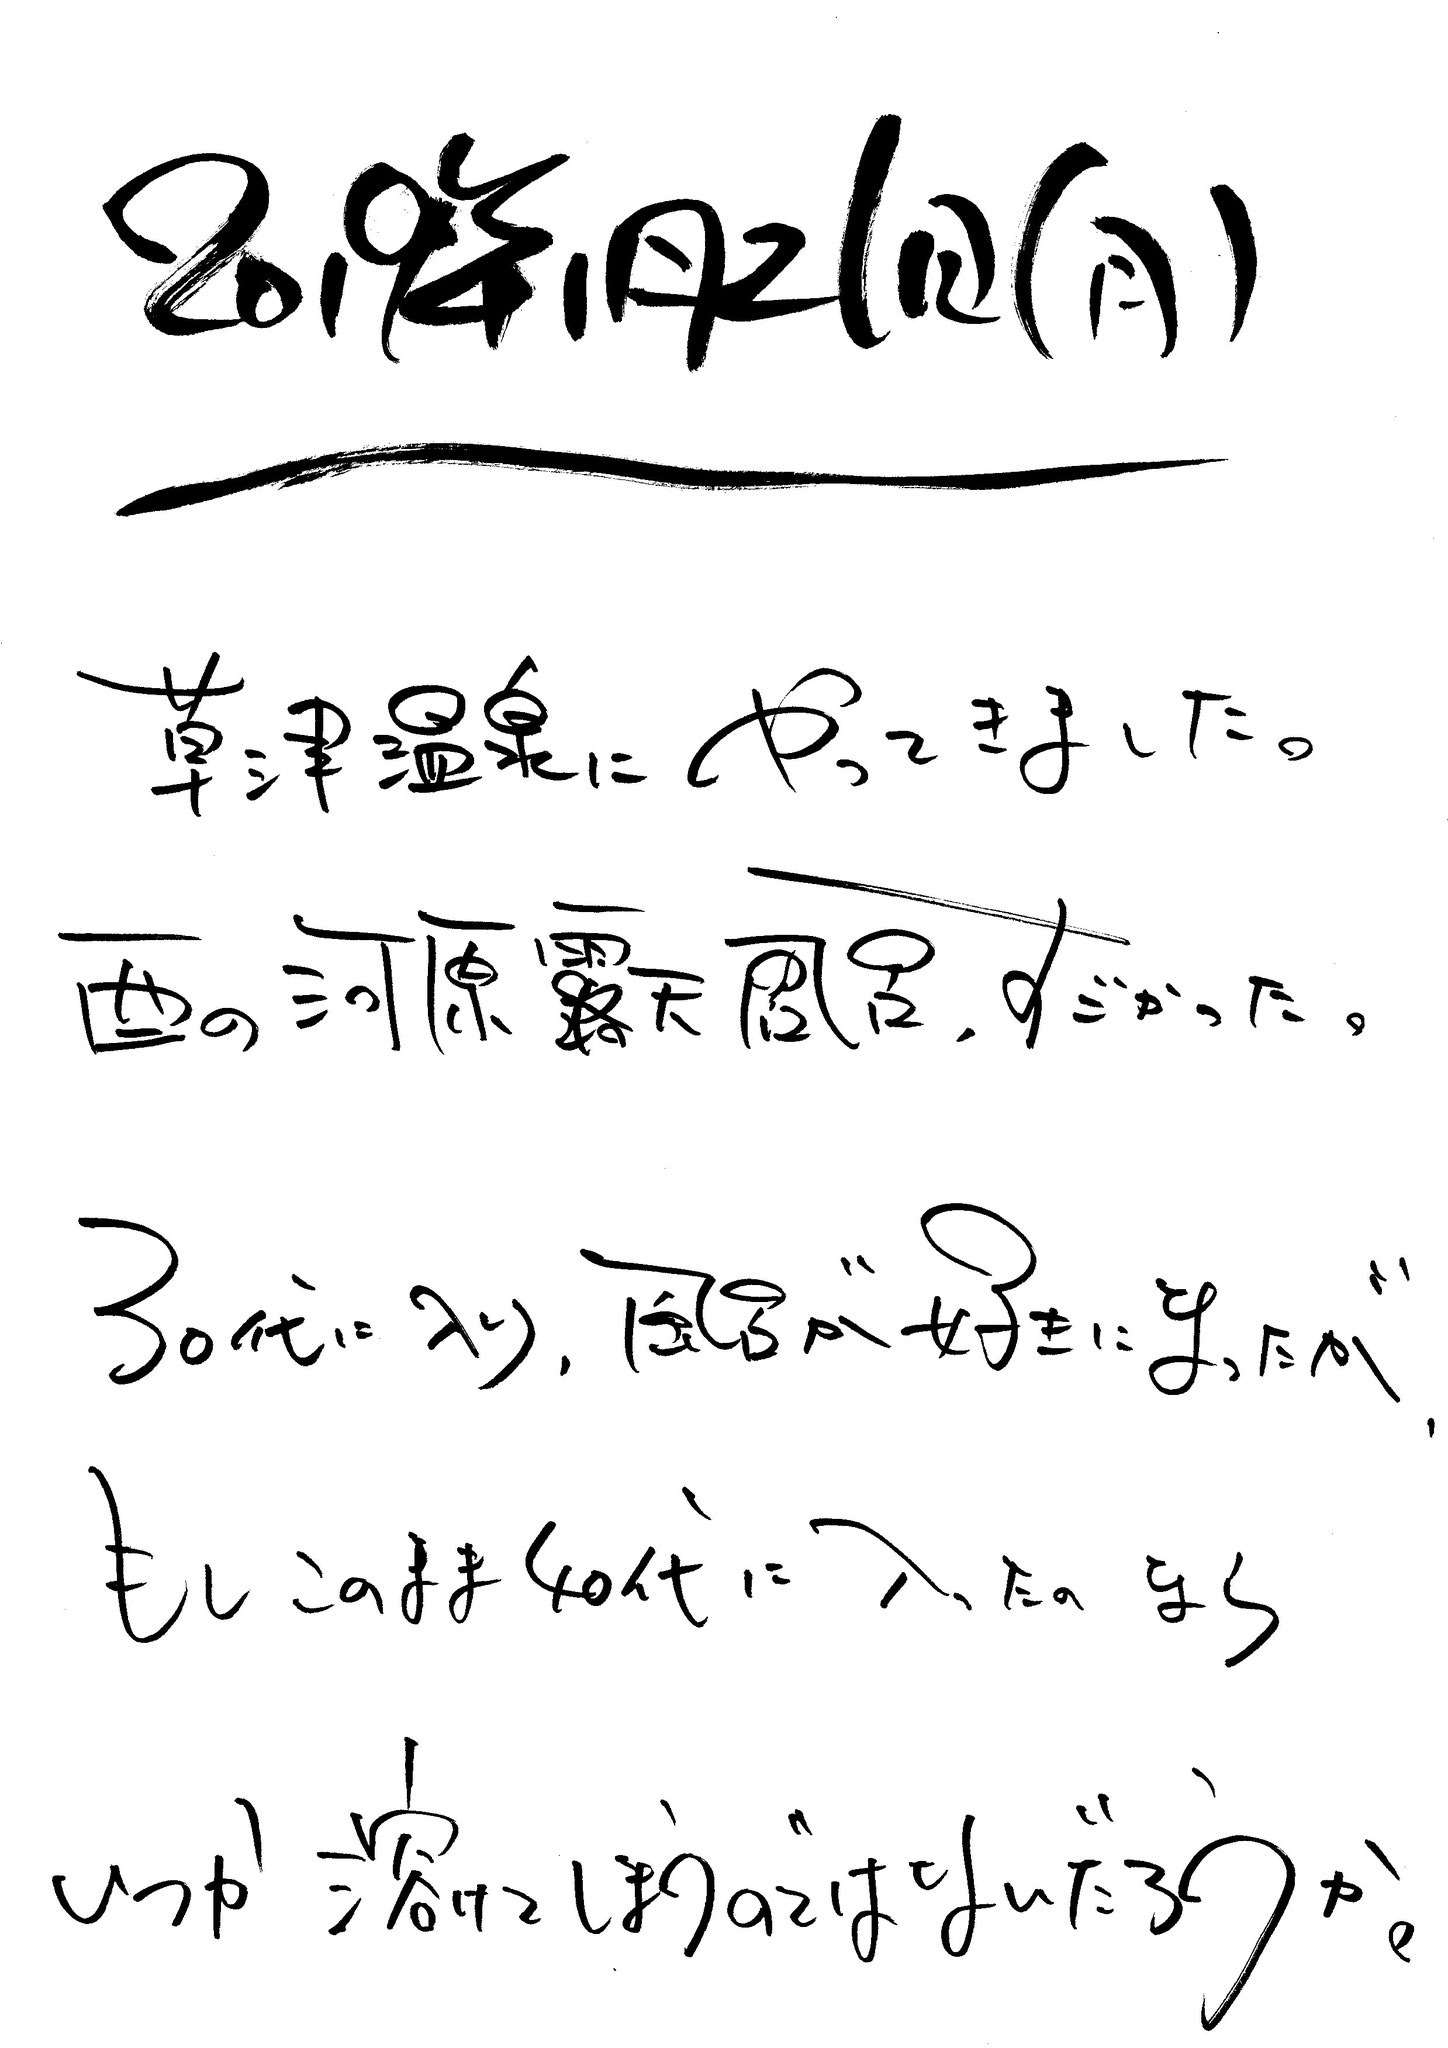 2019年1月21日(月)
草津温泉にやってきました。
西の河原露天風呂、すごかった。
30代に入り、風呂が好きになったが、
もしこのまま40代に入ったのなら
いつか溶けてしまうのではないだろうか。